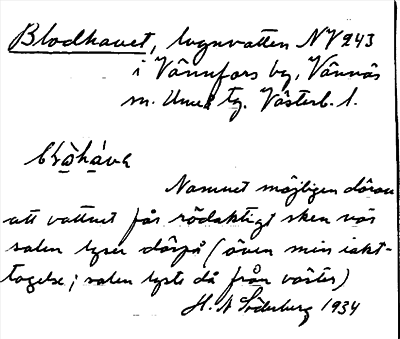 Blodhavet, lugnvatten NV 243
i Vännfors by, Vännäs
sn. Umeå tg. Västerb. l.
blo̱hávɐ
Namnet möjligen därav
att vattnet får rödaktigt sken när
solen lyser därpå (även min iakt-
tagelse; solen lyste då från väster)
H. N Söderberg 1934